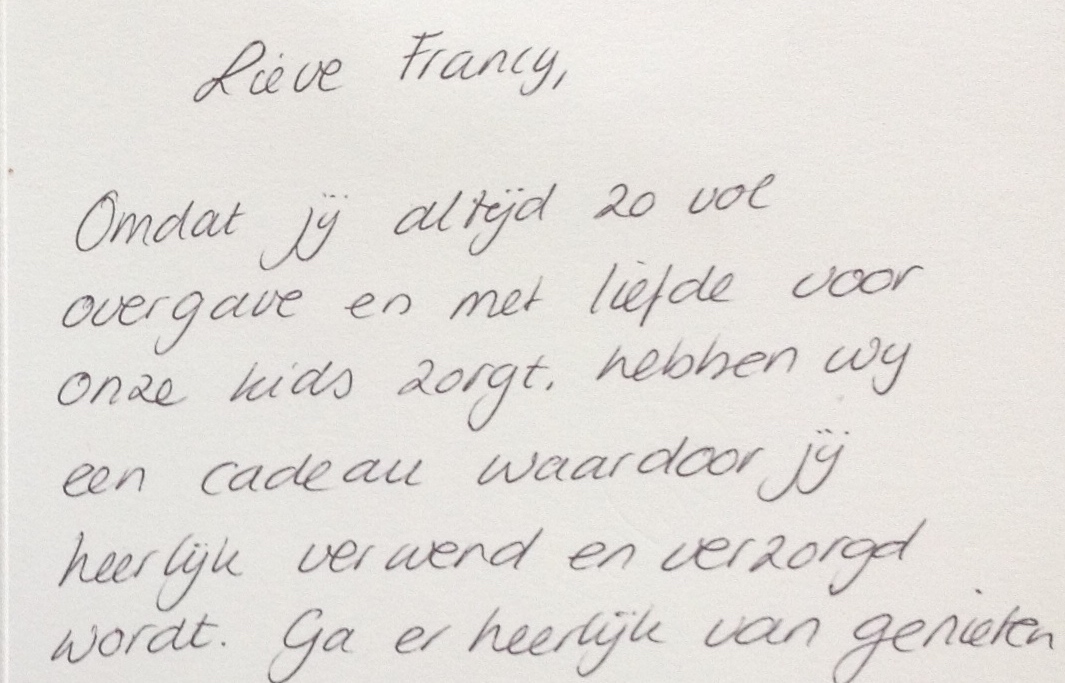 Lieve Francy,
Omdat jij altijd zo vol
overgave en met liefde voor
onze kids zorgt, hebben wij
een cadeau waardoor jij
heerlijk verwend en verzorgd
wordt. Ga er heerlijk van genieten